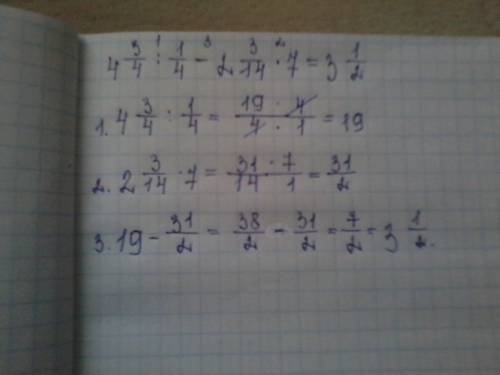 4 3/4 : 1/4 - 2 3/14 · 7 = 3 1/2
1. 4 3/4 : 1/4 = 19 · 4 / 4 · 1 = 19
2. 2 3/14 · 7 = 31 · 7 / 14 · 1 = 31/2
3. 19 - 31/2 = 38/2 - 31/2 = 7/2 = 3 1/2.